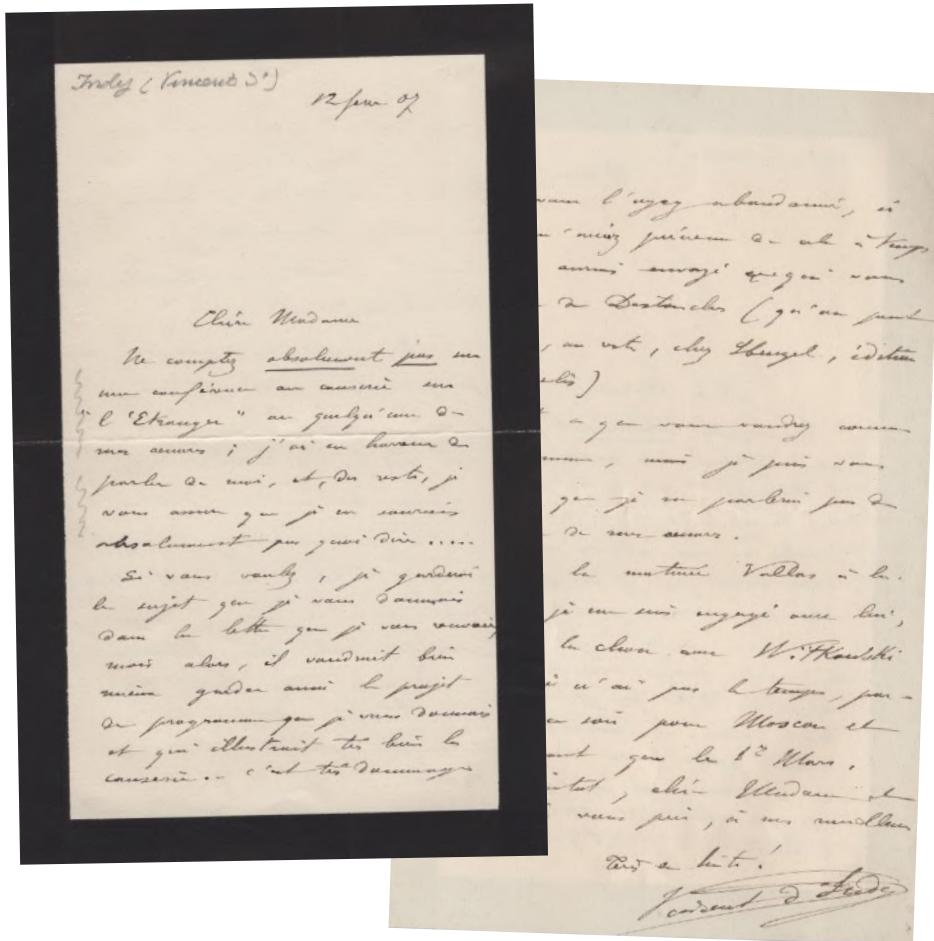 Indy (Vincent d')
12 fevr 07
Chère Madame
Ne comptez absolument pas sur
une conférence ou causerie sur
l'"Etranger" ou quelqu'une de
mes œuvres ; j'ai en horreur de
parler de moi, et, du reste, je
vous assure que je ne saurais
absolument pas quoi dire .....
Si vous voulez, je garderai
le sujet que je vous donnais
dans la lettre que je vous
mais alors, il vaudrait bien
mieux garder aussi le projet
de programme que je vous donnais
et qui illustrait très bien la
causerie .. c'est très dommage
vous l'ayez abandonné, si
m'aviez prévenu de cela à temps
aurais envoyé
de Destouches ( qu'on peut
, chez Hengel, éditeur
)
que vous voudrez comme
, mais je puis vous
que je ne parlerai pas de
de mes œuvres.
la matinée Vallas
je me suis engagé avec lui,
la chose avec Witkowski
n'ai pas le temps, par-
ce soir pour Moscou et
que le 1er Mars.
, chère Madame, et
vous prie, à mes meilleurs
Très en hâte !
Vincent d'Indy